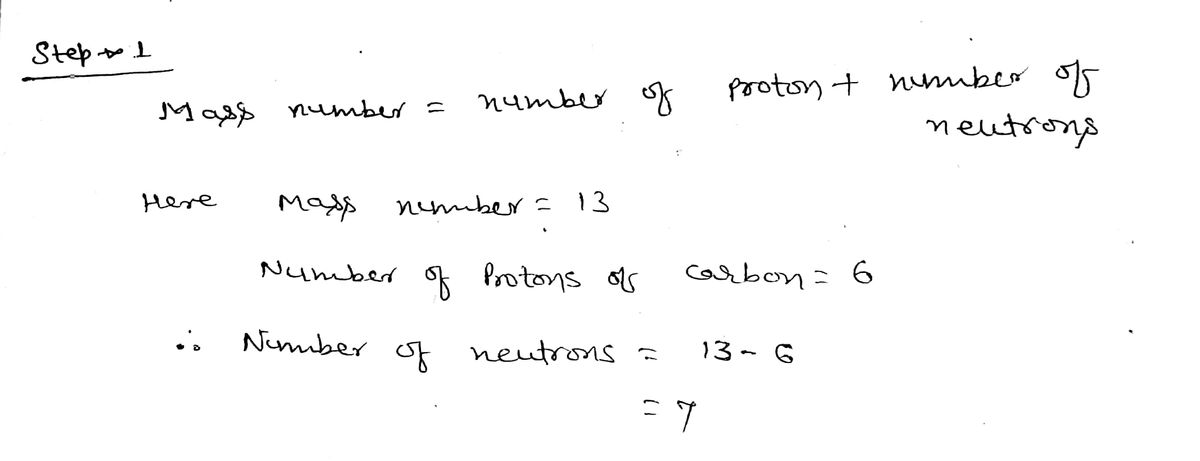 Step 1
Mass number = number of proton + number of
neutrons
Here Mass number = 13
Number of Protons of carbon = 6
∴ Number of neutrons = 13 - 6
= 7